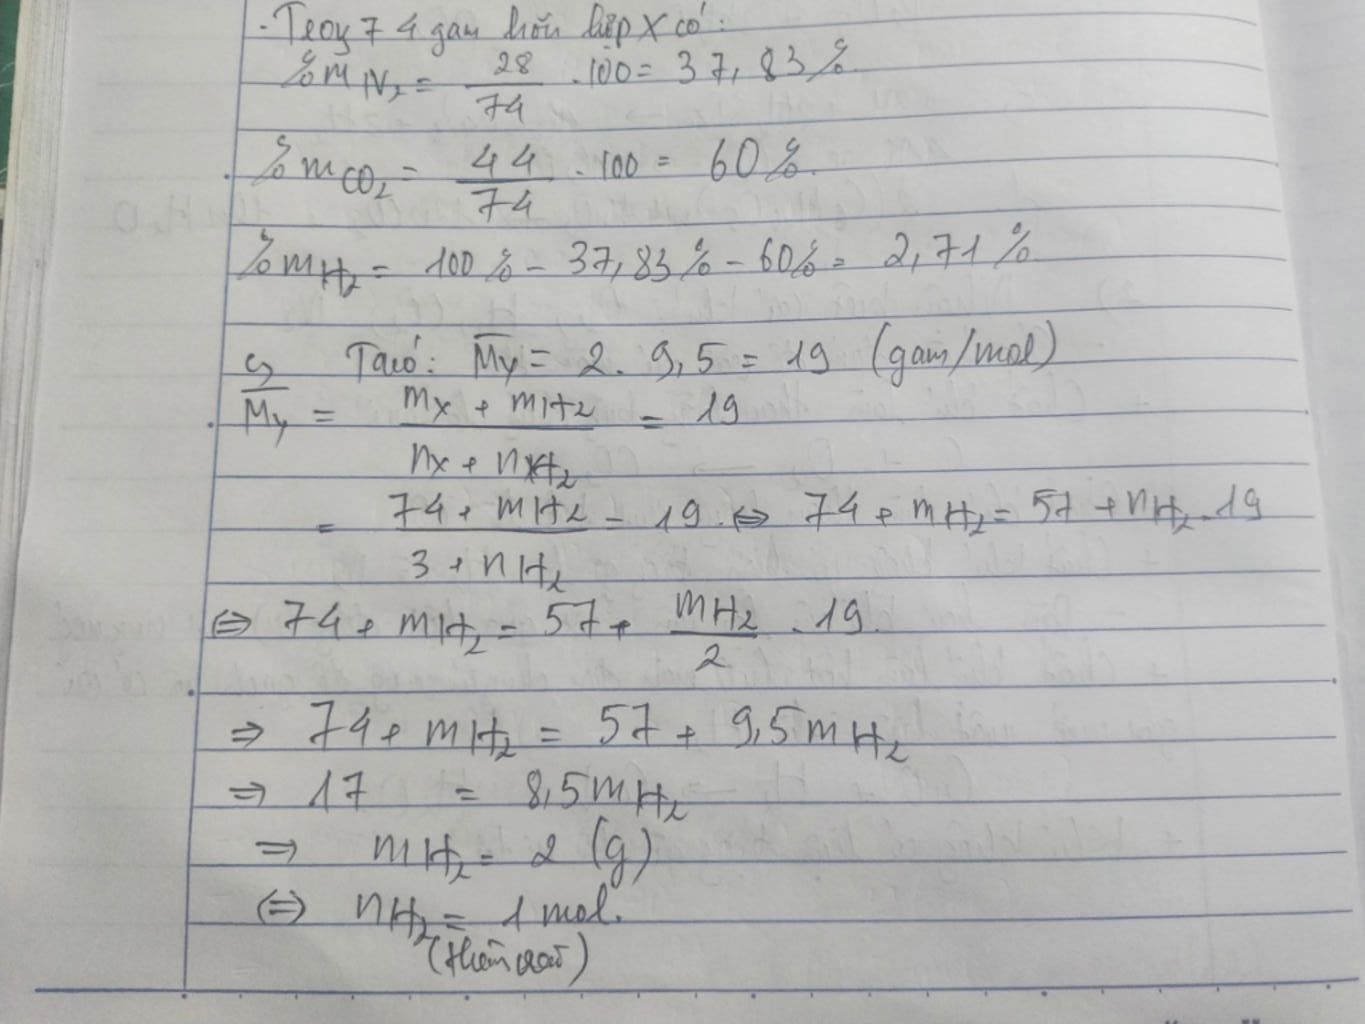 - Trog 74 gam hỗn hợp X có:
%mN₂ = 28/74 . 100 = 37,83%
%mCO₂ = 44/74 . 100 = 60%.
%mH₂ = 100% - 37,83% - 60% = 2,71%
c, Ta có: M̅y = 2. 9,5 = 19 (gam/mol)
M̅y = (mx + mH₂)/(nx + nH₂) = 19
= (74 + mH₂)/(3 + nH₂) = 19. ⇔ 74 + mH₂ = 57 + nH₂ . 19
⇔ 74 + mH₂ = 57 + mH₂/2 . 19.
⇒ 74 + mH₂ = 57 + 9,5mH₂
⇒ 17 = 8,5mH₂
⇒ mH₂ = 2 (g)
⇔ nH₂ = 1 mol.
(thêm vào)